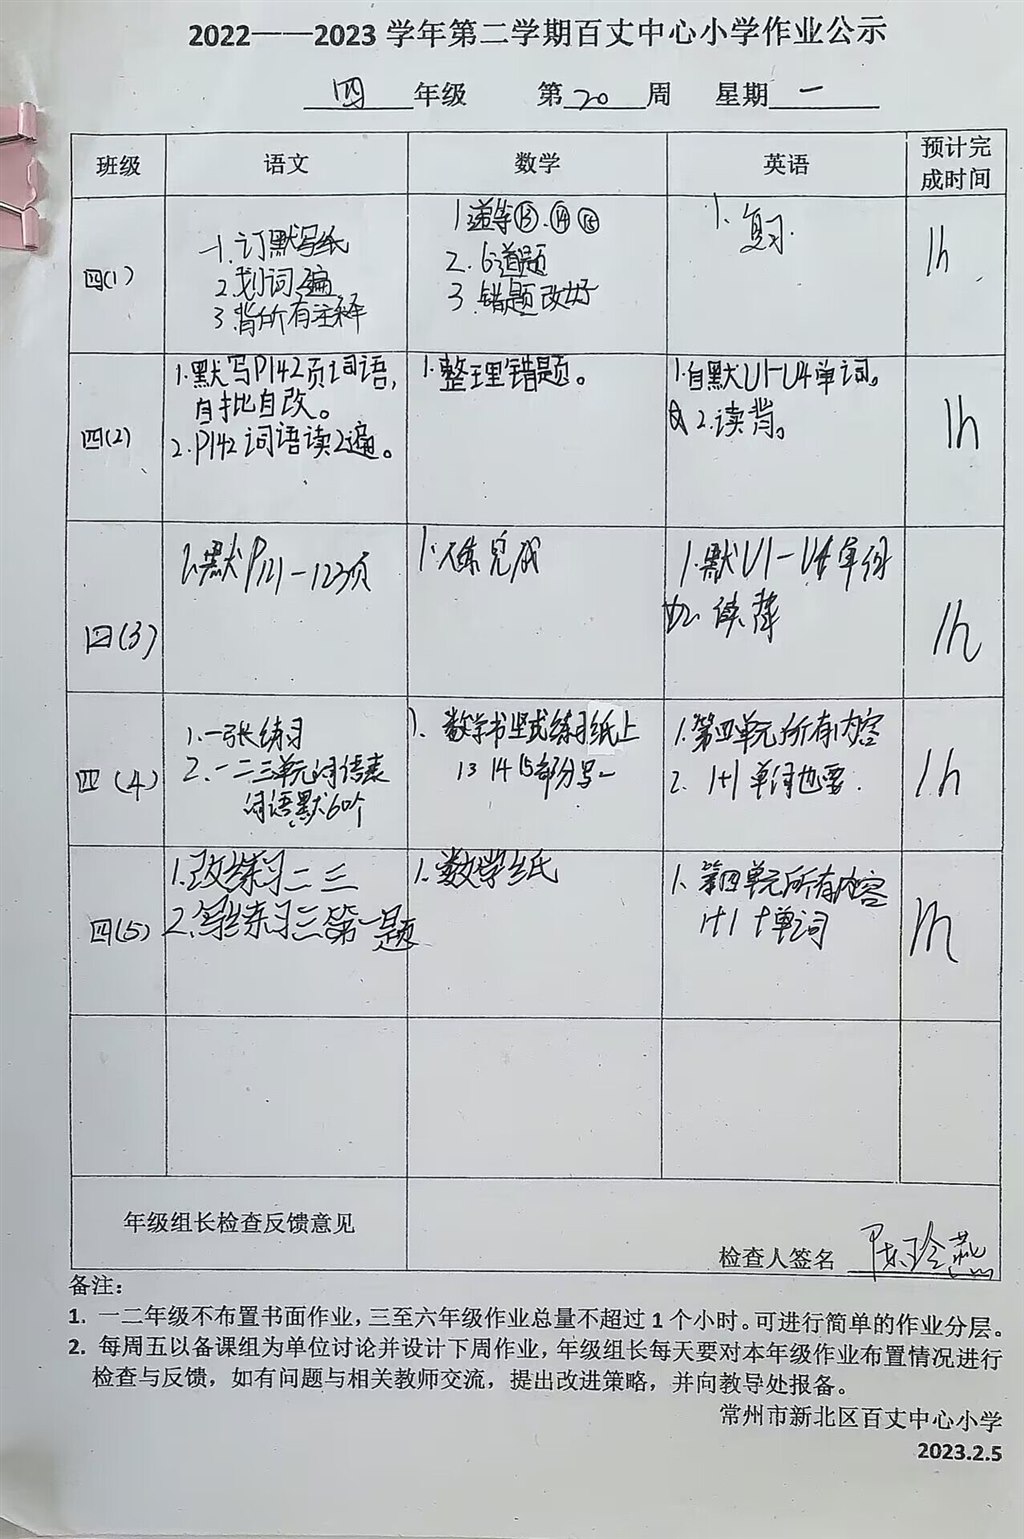 2022——2023 学年第二学期百丈中心小学作业公示
四 年级 第 20 周 星期 一
班级 语文 数学 英语 预计完成时间
四(1)
1.订默写纸
2.划词2遍
3.背所有注释
1.递等⑬.⑭⑮
2.6道题
3.错题改好
1.复习.
1h
四(2)
1.默写P142页词语,
自批自改。
2.P142词语读2遍。
1.整理错题。
1.自默U1-U4单词。
2.读背。
1h
四(3)
1.默P121-123页
1.练完成
1.默U1-U4单
2.读
1h
四(4)
1.一张练习
2.一二三单元词语表
词语默60个
1.数学书竖式练习纸上
13 14 15部分写
1.第四单元所有内容
2.1+1单词也要.
1h
四(5)
1.改练习二三
2.写练习三第一题
1.数学纸
1.第四单元所有内容
1+1 单词
1h
年级组长检查反馈意见
检查人签名 陈玲燕
备注：
1. 一二年级不布置书面作业，三至六年级作业总量不超过 1 个小时。可进行简单的作业分层。
2. 每周五以备课组为单位讨论并设计下周作业，年级组长每天要对本年级作业布置情况进行
检查与反馈，如有问题与相关教师交流，提出改进策略，并向教导处报备。
常州市新北区百丈中心小学
2023.2.5